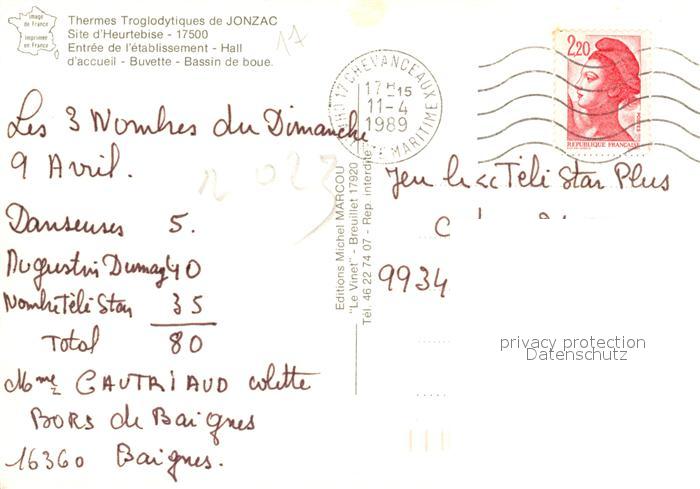 image
de France
imprimé
en France
Thermes Troglodytiques de JONZAC
Site d'Heurtebise - 17500
Entrée de l'établissement - Hall
d'accueil - Buvette - Bassin de boue.
17
17 CHEVANCEAUX
17 H 15
11-4
1989
MARITIME
2,20
POSTES
REPUBLIQUE FRANÇAISE
Les 3 Nombres du Dimanche
9 Avril.
Danseuses 5.
Augustin Dumay 40
Nombre Télé Star 35
Total 80
Mme GAUTRIAUD Colette
BORS de Baignes
16360 Baignes.
Editions Michel MARCOU
"Le Vinet" - Breuillet 17920
Tél. 46 22 74 07 - Rep. interdite
Jeu Télé Star Plus
9934
privacy protection
Datenschutz